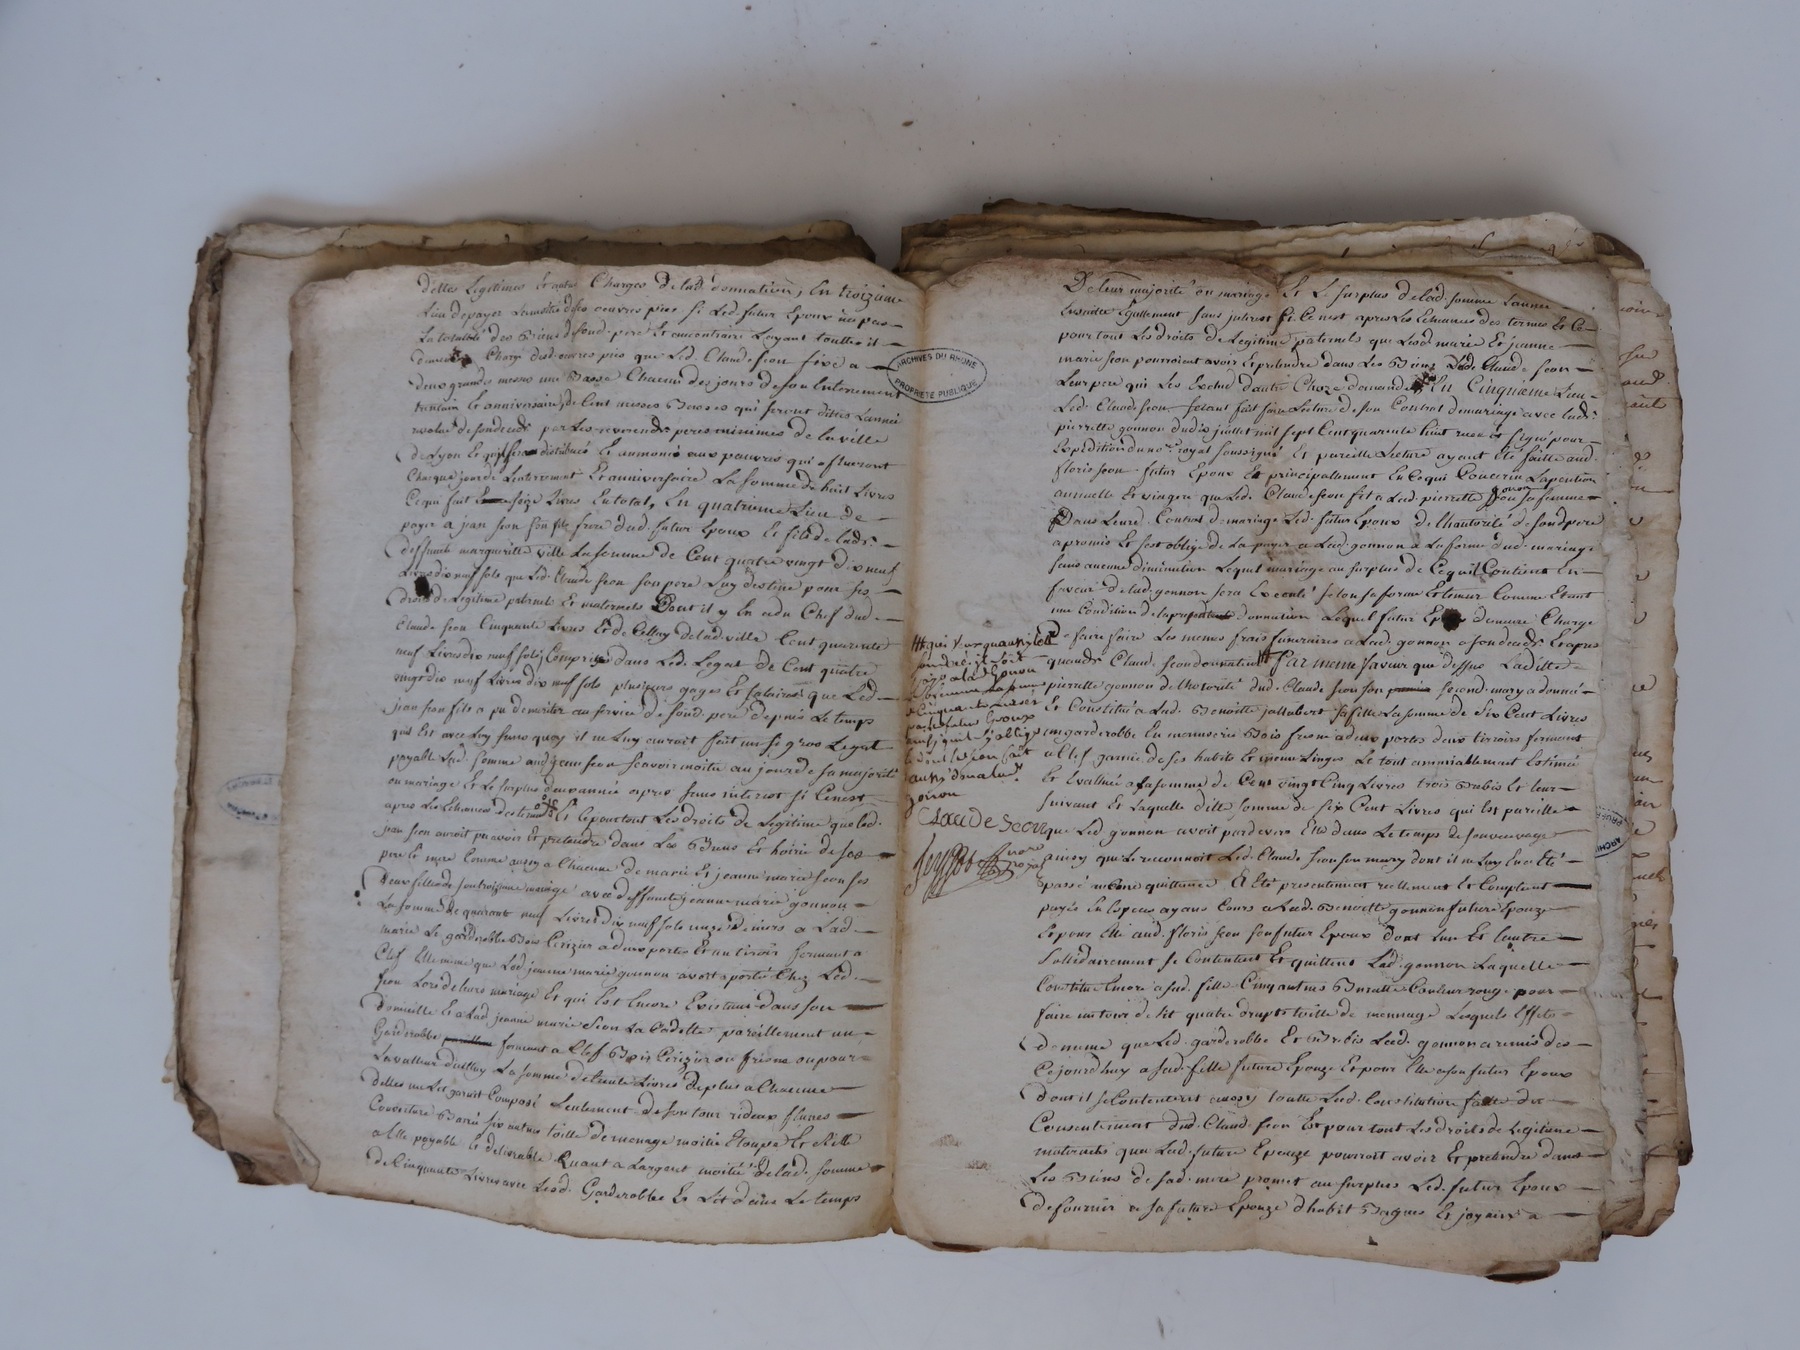 dettes Legitimes et autres Charges de lad. donnation, En troizieme
Lieu de payer Lamoitié des oeuvres pies si Led. futur Epoux n'a pas
La totalité des Biens de sond. pere Et au contraire L'ayant touttes il
demeure Chargé desd. oeuvres pies que Led. Claude seon fixe a
deux grandes messes une Basse Chacune des jours de son Enterrement
trentain Et anniversaire, de Cent messes Basses qui seront dittes L'année
revolue de son deceds par Les reverends peres minimes de la ville
de Lyon Et qu'il sera distribué Et aumoné aux pauvres qui assisteront
Chaque jour de L'enterrement Et anniversaire La somme de huit Livres
Ce qui fait seize Livres En total, En quatrieme Lieu de
payer a jean seon son fils frere dud. futur Epoux Et fils de lad.
deffunte margueritte ville La somme de Cent quatre vingt dix neuf
Livres dix neuf sols que Led. Claude seon son pere Luy destine pour ses
droits de Legitime paternels Et maternels Dont il y En a du Chef dud.
Claude seon Cinquante Livres Et de Celluy de lad. ville Cent quarante
neuf Livres dix neuf sols, Compris dans Led. Legat de Cent quatre
vingt dix neuf Livres dix neuf sols plusieurs gages Et salaires que Led.
jean seon fils a pu demeriter au service de sond. pere depuis Le temps
qu'il Est avec Luy sans quoy il ne Luy auroit fait un si gros Legat
payable Lad. somme aud. jean seon scavoir moitié au jour de sa majorité
ou mariage Et Le surplus une année apres sans interest si Ce n'est
apres Les Echeances des termes Et Ce pour tout Les droits de Legitime que led.
jean seon auroit pu avoir Et pretendre dans Les Biens Et hoirie de ses
pere Et mere Comme aussy a Chacune de marie Et jeanne marie seon ses
Deux filles de son troizieme mariage avec deffunte jeanne marie gonnon
La somme de quarante neuf Livres dix neuf sols onze deniers a Lad.
marie Le garderobbe Bois Cerizier a deux portes Et un tiroir fermant a
Clef Elle meme que Lad. jeanne marie gonnon avoit aporté Chez Led.
seon Lors de leurs mariage Et qui Est Encore Existant dans son
Domicille Et a Lad. jeanne marie Seon La Cadette pareillement un
Garderobbe fermant a Clef Bois Cerizier ou frene ou pour
La valleur d'icelluy La somme de trente Livres de plus a Chacune
delles un Lit garnit Composé seulement de son tour rideaux
Couverture Barré six autres toille de menage moitié Etoupe Et
a Elle payable Et delivrable Quant a L'argent moitié de lad. somme
de Cinquante Livres avec Lesd. Garderobbe Et Lit dans Le temps
De Leur majorité ou mariage Et Le surplus de lad. somme L'année
Ensuitte Egallement sans interest si Ce n'est apres Les Echeances des termes Et Ce
pour tout Les droits de Legitime paternels que Lesd. marie Et jeanne
marie seon pourroient avoir Et pretendre dans Les Biens dud. Claude seon
Leur pere qui Les Exclud d'autre Choze demander En Cinquieme Lieu
Led. Claude seon setant fait faire Lecture de son Contrat de mariage avec lad.
pierrette gonnon du dix juillet mil sept Cent quarante huit receu Et signé pour
Expedition du nore. royal soussigné Et pareille Lecture ayant Eté faitte aud.
floris seon futur Epoux Et principallement En Ce qui Concerne La pention
annuelle Et viagere que Led. Claude seon fit a Lad. pierrette gonnon sa femme
Dans Leurd. Contrat de mariage Led. futur Epoux de L'hautorité de sond. pere
a promis Et sest obligé de La payer a Lad. gonnon a La forme dud. mariage
sans aucune diminution Lequel mariage au surplus de Ce qu'il Contient En
faveur de lad. gonnon sera Executé selon sa forme Et teneur Comme Etant
une Condition de la presente donnation Lequel futur Epoux demeure Chargé
de faire faire Les memes frais funeraires a Lad. gonnon a son deceds Et apres
quand. Claude seon donnateur # Par meme faveur que dessus Laditte
pierrette gonnon de L'hotorité dud. Claude seon son second mary a donné
Et Constitué a Lad. Benoitte jallabert sa fille La somme de Six Cent Livres
un garderobbe En menuserie Bois frene a deux portes deux tiroirs fermant
a Clef garnie de ses habits Et menu Linges Le tout amiablement Estimé
Et Evallué a La somme de Cent vingt Cinq Livres trois Brebis Et leur
suivant Et Laquelle ditte somme de six Cent Livres qui Est pareille
que Led. gonnon avoit pardevers Elle dans Le temps de son veuvage
ainsy que Le reconnoit Led. Claude seon son mary dont il ne Luy En a Eté
passé aucune quittance A Eté presentement reellement Et Comptant
payée En Especes ayant Cours a Lad. Benoitte gonnon future Epouze
Et pour Elle aud. floris seon son futur Epoux dont L'un Et L'autre
sollidairement se Contentent Et quittent Lad. gonnon Laquelle
Constitue Encore a sad. fille Cinq autres Bureatte Couleur rouge pour
faire un tour de Lit quatre draps toille de mennage Lesquels Effets
de meme que Led. garderobbe Et Brebis Lad. gonnon a remis des
Ce jourd'huy a sad. fille future Epouze Et pour Elle a son futur Epoux
dont il se Contentent aussy toutte Lad. Constitution faitte du
Consentement dud. Claude seon Et pour tout Les droits de Legitime
maternels que Lad. future Epouze pourroit avoir Et pretendre dans
Les Biens de sad. mere promet au surplus Led. futur Epoux
de fournir a sa future Epouze d'habit Bagues Et joyaux a
# qui
a lad. Gonon
Cinquante Livres
Epoux
s'oblige
Gonon
Claude Seon
nore
royal
ARCHIVES DU RHONE
PROPRIETE PUBLIQUE